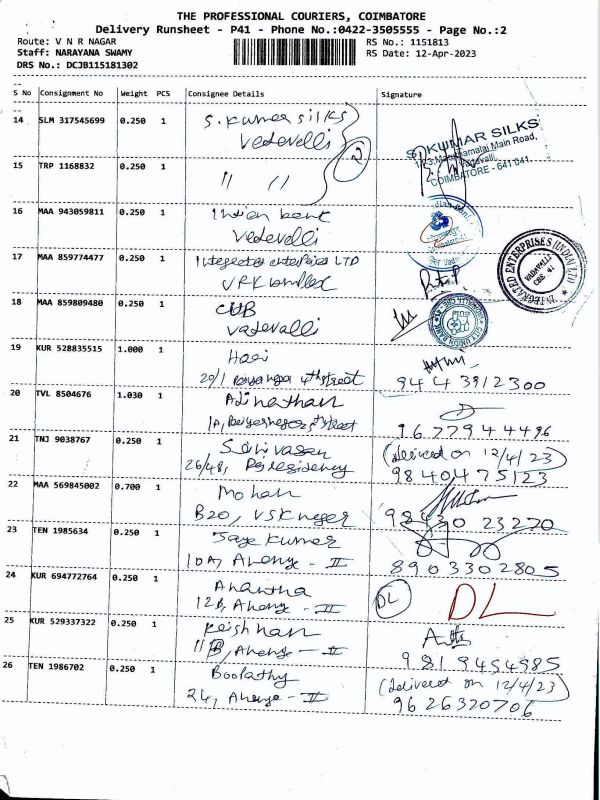 THE PROFESSIONAL COURIERS, COIMBATORE
Delivery Runsheet - P41 - Phone No.:0422-3505555 - Page No.:2
Route: V N R NAGAR RS No.: 1151813
Staff: NARAYANA SWAMY RS Date: 12-Apr-2023
DRS No.: DCJB115181302
S No Consignment No Weight PCS Consignee Details Signature
14 SLM 317545699 0.250 1 S. Kumar Silks
Vadavalli
2
S. KUMAR SILKS
Main Road,
Vadavalli,
COIMBATORE - 641 041.
15 TRP 1168832 0.250 1 11 11
16 MAA 943059811 0.250 1 Indian bank
Vadavalli
17 MAA 859774477 0.250 1 Integrated enterprises LTD
VRK complex
INTEGRATED ENTERPRISES (INDIA) LTD
VADAVALLI
CBE 41
18 MAA 859809480 0.250 1 CUB
Vadavalli
CITY UNION BANK
19 KUR 528835515 1.000 1 Hari
20/1 4th street
9443912300
20 TVL 8504676 1.030 1 Adinathan
1A, street
9677944496
21 TNJ 9038767 0.250 1 Srinivasan
26/48, Residency
(delivered on 12/4/23)
9840475123
22 MAA 569845002 0.700 1 Mohan
B20, VSK nagar
98430 23270
23 TEN 1985634 0.250 1 Jaya Kumar
10A, - II
8903302805
24 KUR 694772764 0.250 1 Anantha
12B, - II
DL DL
25 KUR 529337322 0.250 1 Krishnan
11B, - II
9819454985
26 TEN 1986702 0.250 1 Boopathy
24, - II
(delivered on 12/4/23)
9626320706